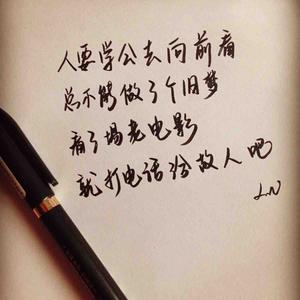 人要学公去向前看
总不能做了个旧梦
看了場老电影
就打电话给故人吧
L.N